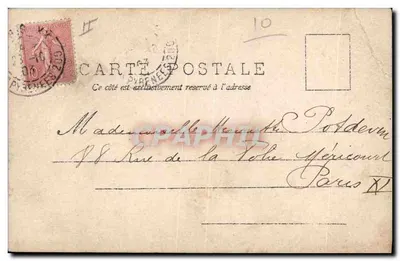 II
10
CARTE POSTALE
Ce côté est exclusivement réservé à l'adresse
Mademoiselle Potdevin
98 Rue de la Folie Méricourt
Paris XI